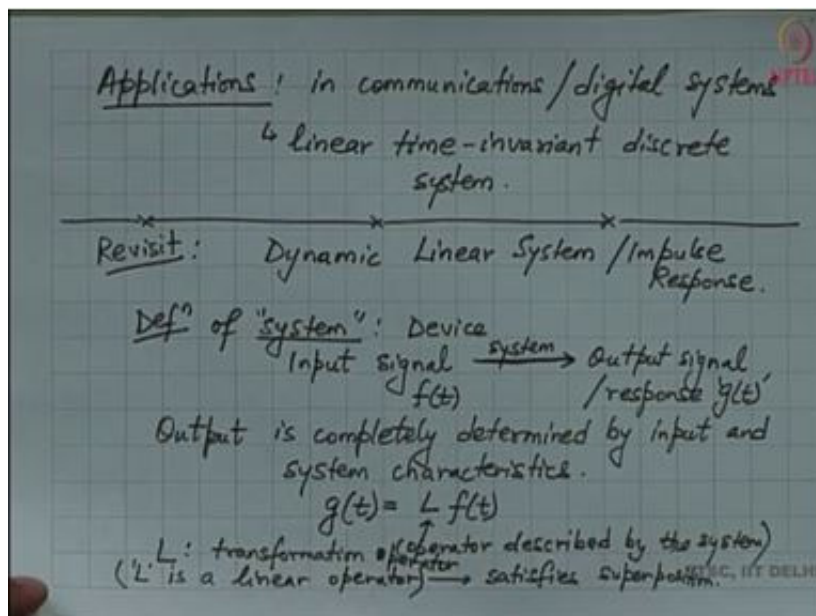 Applications : in communications / digital systems
↳ linear time-invariant discrete
system.
Revisit : Dynamic Linear System / Impulse
Response.
Defⁿ of "system" : Device
Input signal —system→ Output signal
f(t) / response 'g(t)'
Output is completely determined by input and
system characteristics.
g(t) = L f(t)
L : transformation operator (operator described by the system)
('L' is a linear operator) → satisfies superposⁿ.
NPTEL
IIT DELHI